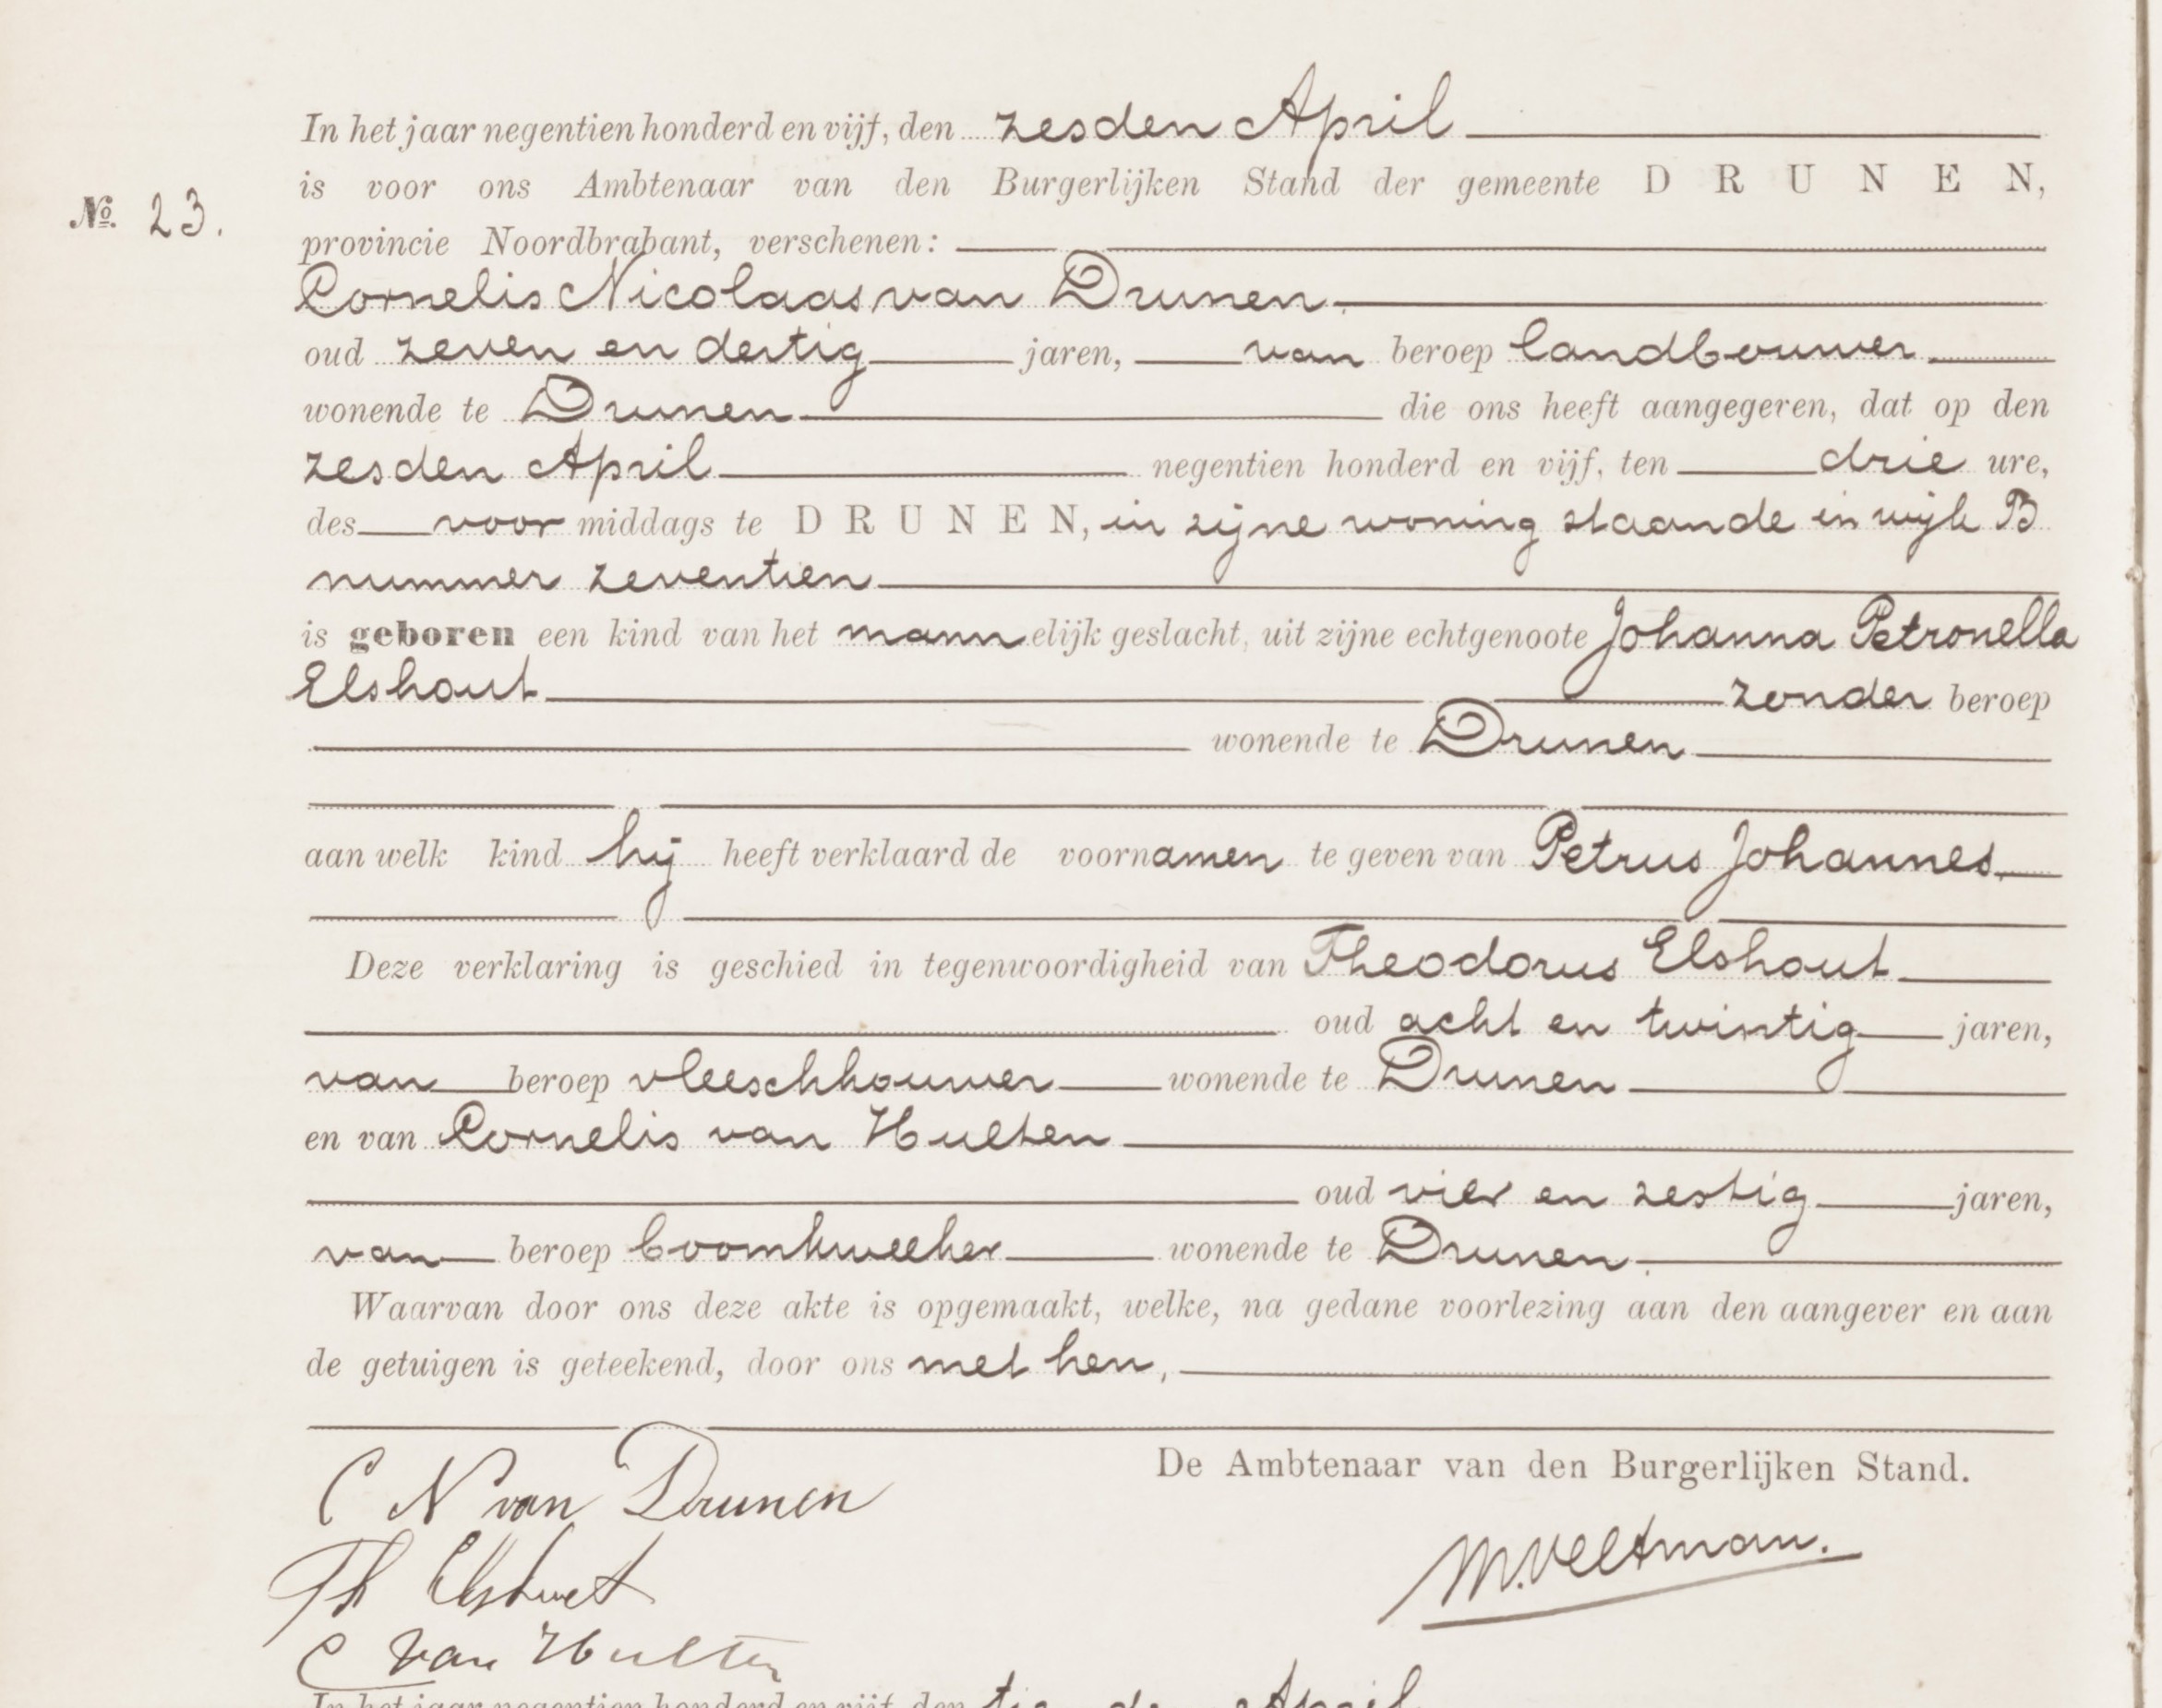 In het jaar negentien honderd en vijf, den zesden April
is voor ons Ambtenaar van den Burgerlijken Stand der gemeente DRUNEN,
No. 23.
provincie Noordbrabant, verschenen:
Cornelis Nicolaas van Drunen.
oud zeven en dertig jaren, van beroep landbouwer
wonende te Drunen die ons heeft aangegeren, dat op den
zesden April negentien honderd en vijf, ten drie ure,
des voor middags te DRUNEN, in zijne woning staande in wijk B
nummer zeventien
is geboren een kind van het mannelijk geslacht, uit zijne echtgenoote Johanna Petronella
Elshout zonder beroep
wonende te Drunen
aan welk kind hij heeft verklaard de voornamen te geven van Petrus Johannes.
Deze verklaring is geschied in tegenwoordigheid van Theodorus Elshout
oud acht en twintig jaren,
van beroep vleeschhouwer wonende te Drunen
en van Cornelis van Hulten
oud vier en zestig jaren,
van beroep boomkweeker wonende te Drunen.
Waarvan door ons deze akte is opgemaakt, welke, na gedane voorlezing aan den aangever en aan
de getuigen is geteekend, door ons met hen,
De Ambtenaar van den Burgerlijken Stand.
C N van Drunen
M. Veltman.
Th Elshout
C van Hulten
In het jaar negentien honderd en vijf, den April